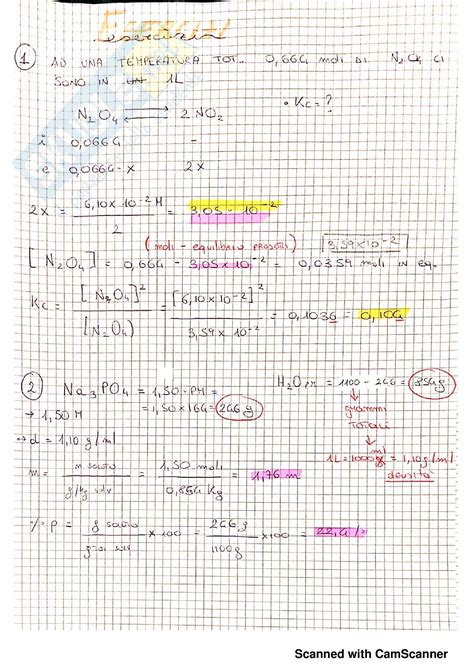 ESERCIZI
esercizi
1 AD UNA TEMPERATURA TOT. 0,664 moli DI N2O4 CI
SONO IN UN 1L
• Kc = ?
N2O4 ⇄ 2NO2
i 0,0664 -
e 0,0664-X 2X
2X = 6,10 x 10^-2 M / 2 = 3,05 · 10^-2
(moli - equilibrio prodotti) 3,59 x 10^-2
[N2O4] = 0,664 - 3,05 x 10^-2 = 0,0359 moli IN eq.
Kc = [N2O4]^2 / [N2O4) = [6,10 x 10^-2]^2 / 3,59 x 10^-2 = 0,1036 = 0,104
2 Na3PO4 = 1,50 · PM =
→ 1,50 M = 1,50 x 164 = 246 g
H2O PM = 1100 - 246 = 854 g
grammi
TOTALI
⇒ d = 1,10 g/ml
1L = 1000 ml = 1,10 g/ml
densità
m = n soluto / g/kg solv = 1,50 moli / 0,854 Kg = 1,76 m
% P = g soluto / x 100 = 246 g / 1100g x 100 = 22,4 %
Scanned with CamScanner